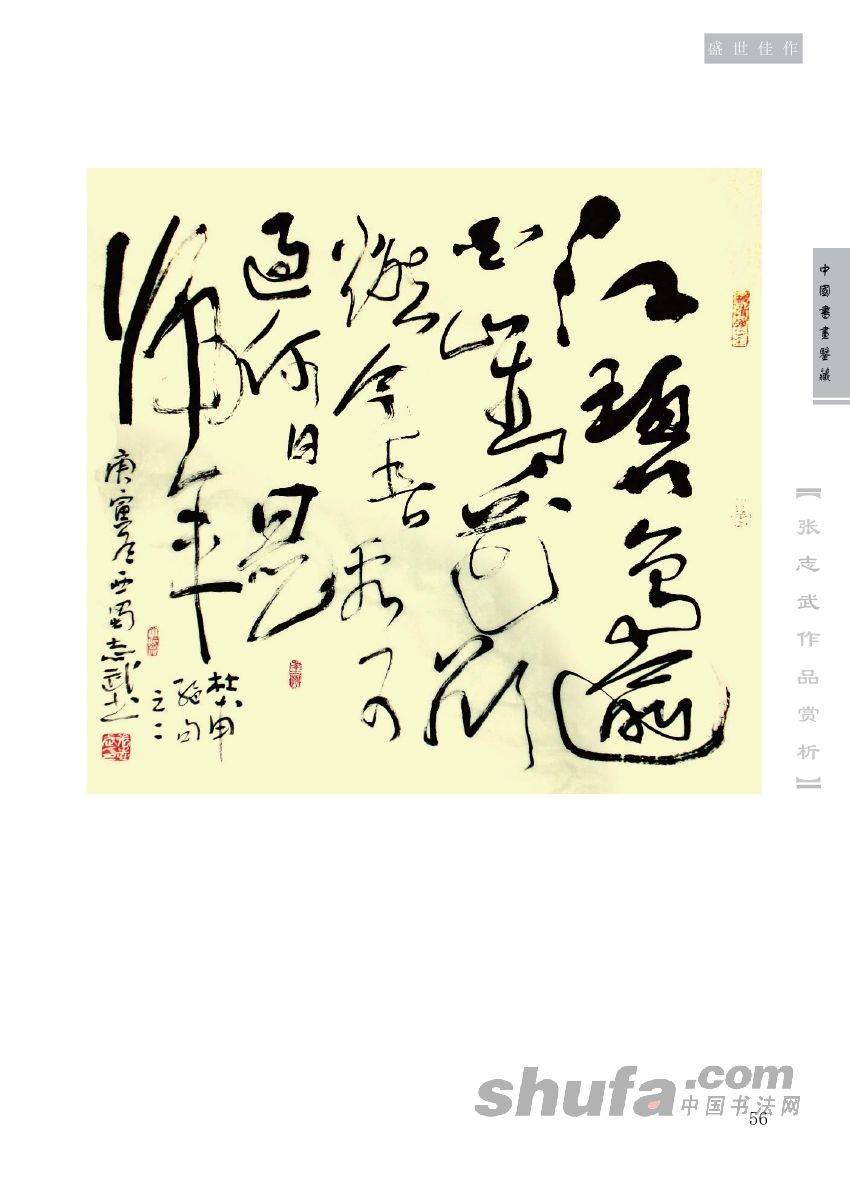 盛世佳作
中國書畫鑒藏
【张志武作品赏析】
江碧鸟逾
白山青花欲
燃今春看又
過何日是
歸年
杜甫
絕句
之二
庚寅冬西蜀志武书
shufa.com
中国书法网
56